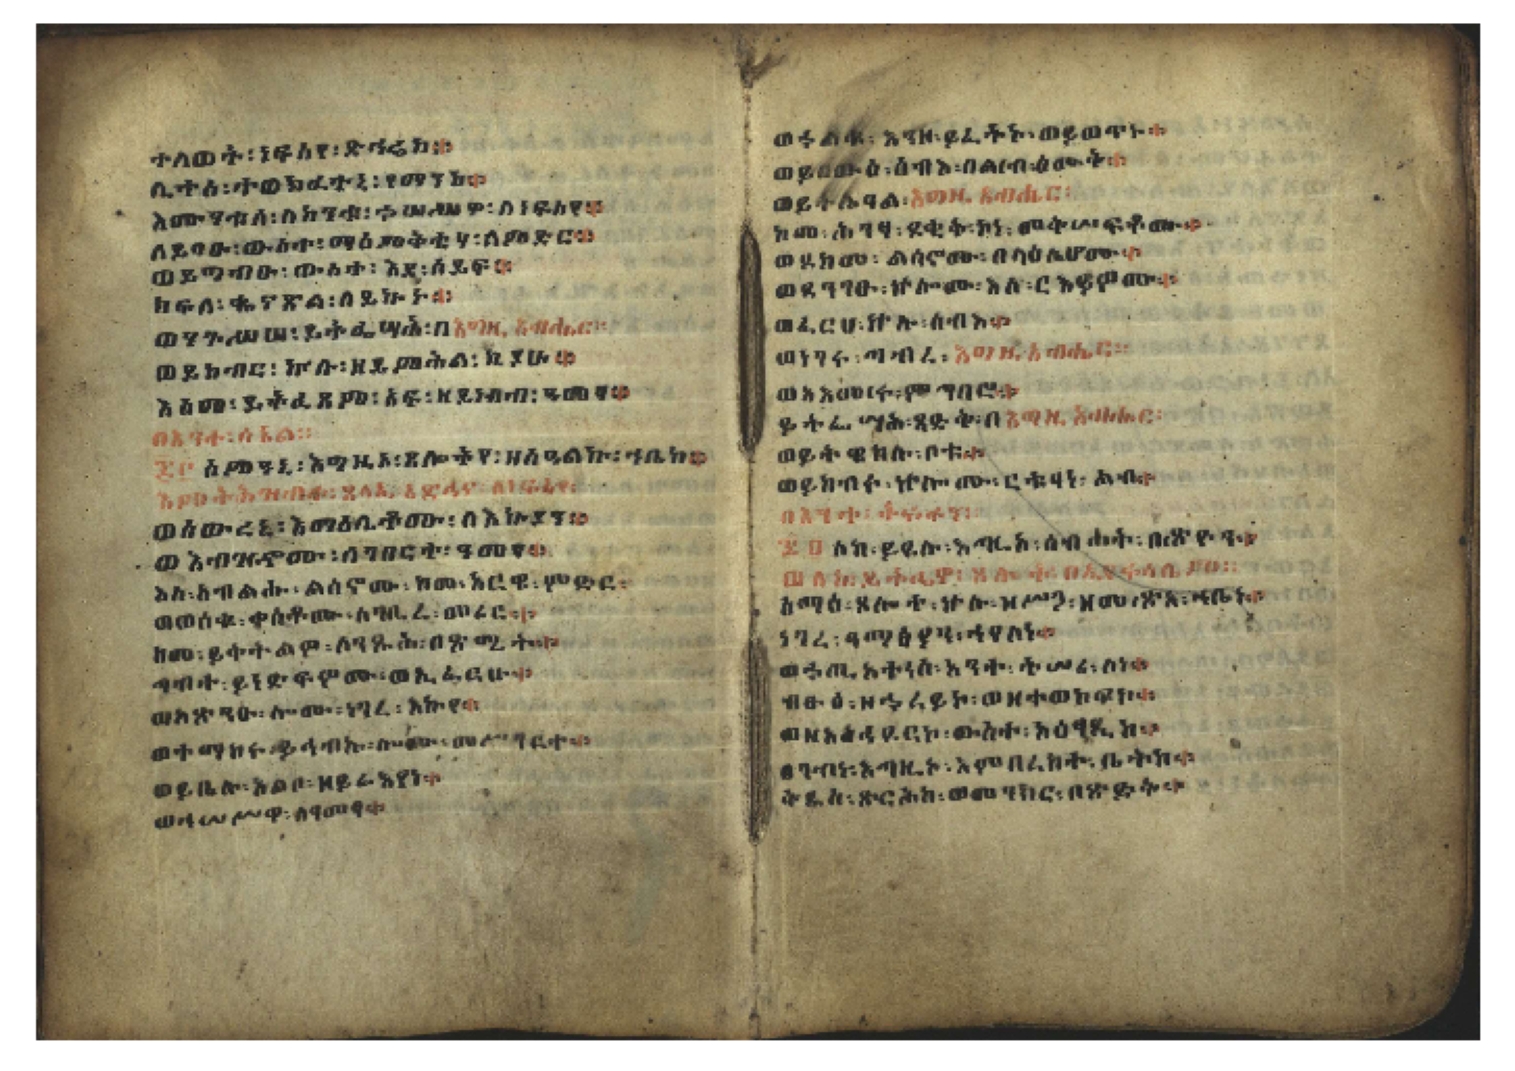 ተለወት፡ነፍስየ፡ድኅሬከ።
ሊተሰ፡ተወክፈተኒ፡የማንከ።
እሙንቱሰ፡ለከንቱ፡ኀሠሥዋ፡ለነፍስየ።
ለይባኡ፡ውስተ፡ማዕምቅቲሃ፡ለምድር።
ወይግብኡ፡ውስተ፡እደ፡ሰይፍ።
ክፍለ፡ቈናጽል፡ለይኩኑ።
ወንጉሠሠ፡ይትፌሣሕ፡በእግዚአብሔር።
ወይከብር፡ኵሉ፡ዘይምሕል፡ኪያሁ።
እስመ፡ይትፈጸም፡አፍ፡ዘይነብብ፡ዓመፃ።
በእንተ፡
፷፫ ስምዓኒ፡እግዚኦ፡ጸሎትየ፡ዘሰዓልኩ፡ኀቤከ።
ወሰውረኒ፡እማዕሌቶሙ፡ለእኩያን።
ወእብዝኆሙ፡ለገበርተ፡ዓመፃ።
እለ፡አብልሑ፡ልሳኖሙ፡ከመ፡አርዌ፡ምድር።
ወወሰቁ፡ቀስቶሙ፡ለግብረ፡መሪር።
ከመ፡ይቅትልዎ፡ለንጹሕ፡በጽሚት።
ግብተ፡ይነድፍዎሙ፡ወኢፈርሁ።
ወአጽንዑ፡ሎሙ፡ነገረ፡እኩየ።
ወተማከሩ፡ይኅብኡ፡ሎሙ፡መሥገርተ።
ወይቤሉ፡አልቦ፡ዘይሬእየነ።
ወኀሠሥዋ፡ለዓመፃ።
ወኀልቁ፡እንዘ፡ይፈትኑ፡ወይወጥኑ።
ወይበውዕ፡ሰብእ፡በልብ፡ዕሙቅ።
ወይትሌዓል፡እግዚአብሔር፡
ከመ፡ሕፃነ፡ደቂቅ፡ኮነ፡መቅሠፍቶሙ።
ወደክመ፡ልሳኖሙ፡በላዕሌሆሙ።
ወደንገፁ፡ኵሎሙ፡እለ፡ርእይዎሙ።
ወፈርሀ፡ኵሉ፡ሰብእ።
ወነገሩ፡ግብረ፡እግዚአብሔር።
ወአእመሩ፡ምግባሮ።
ይትፌሣሕ፡ጻድቅ፡በእግዚአብሔር፡
ወይትዌከሉ፡ቦቱ።
ወይከብሩ፡ኵሎሙ፡ርቱዓነ፡ልብ።
፷፬ ለከ፡ይደሉ፡እግዚኦ፡ስብሐት፡በጽዮን።
ወለከ፡
ስማዕ፡ጸሎተ፡ኵሉ፡ዘሥጋ፡ዘመጽአ፡ኀቤከ።
ነገረ፡ዓማፅያን፡ኀየለነ።
ወኀጢአትነሰ፡አንተ፡ትሠረይ፡ለነ።
ብፁዕ፡ዘኀረይኮ፡ወዘተወከፍኮ።
ወዘአኅደርኮ፡ውስተ፡አዕፃዲከ።
ጸገብነ፡እግዚኦ፡እምበረከተ፡ቤትከ።
ቅዱስ፡ጽርሕከ፡ወመንክር፡በጽድቅ።